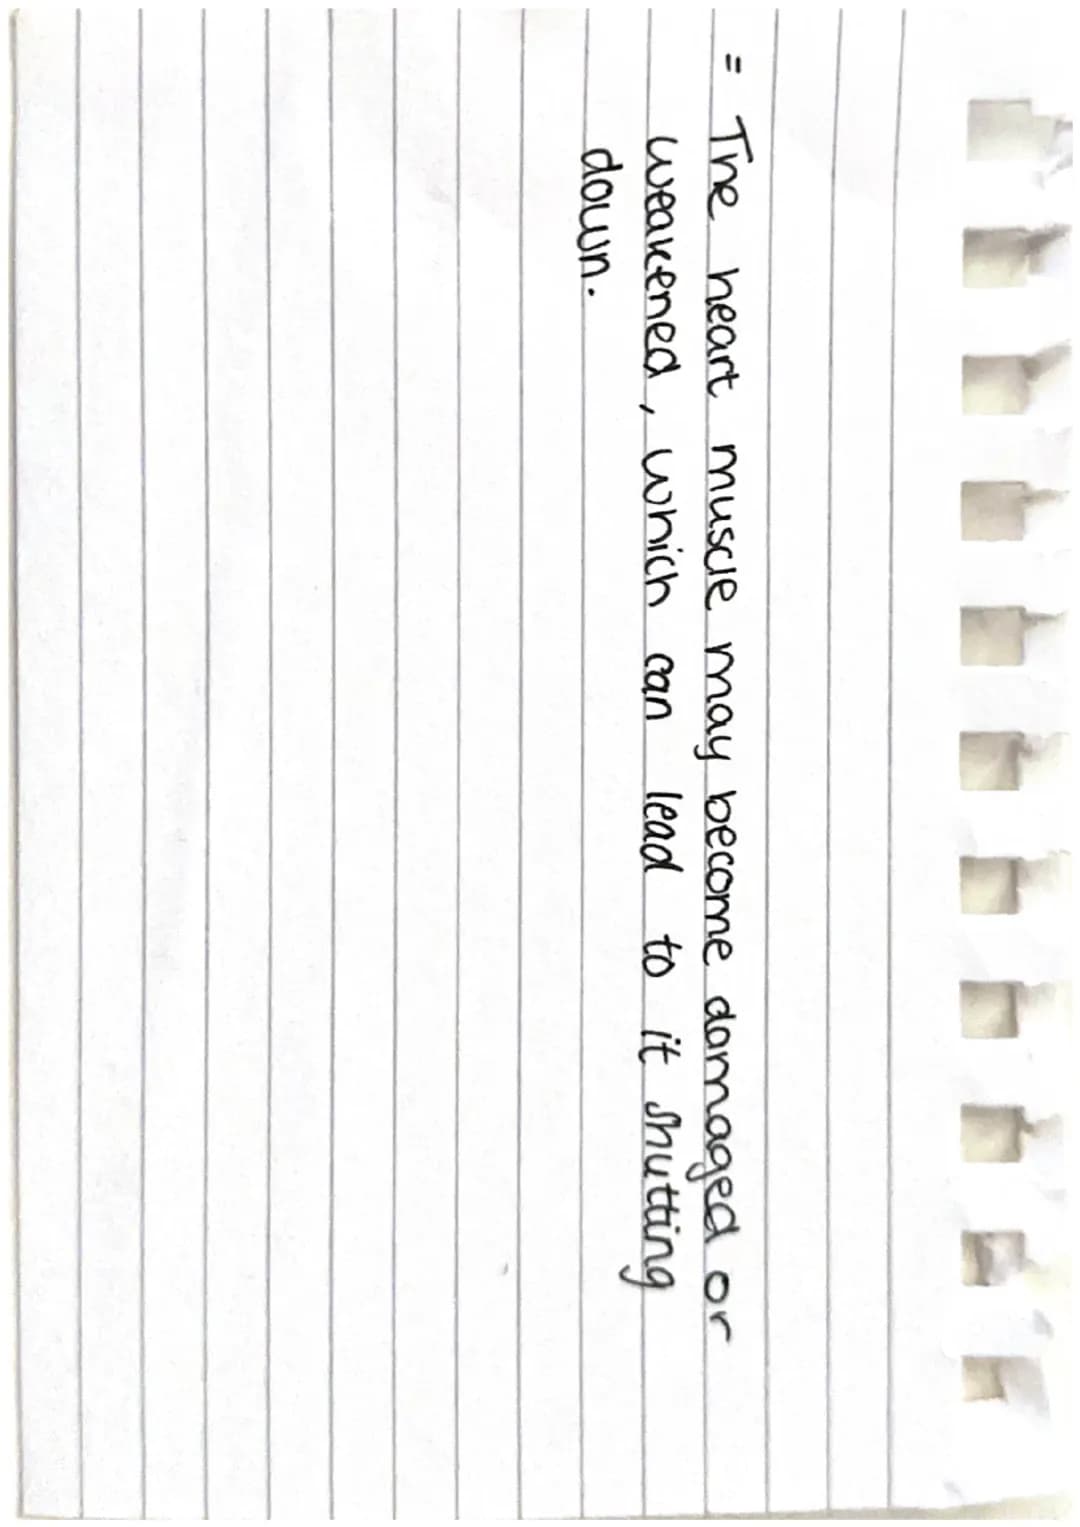 = The heart muscle may become damaged or
weakened, which can lead to it shutting
down.